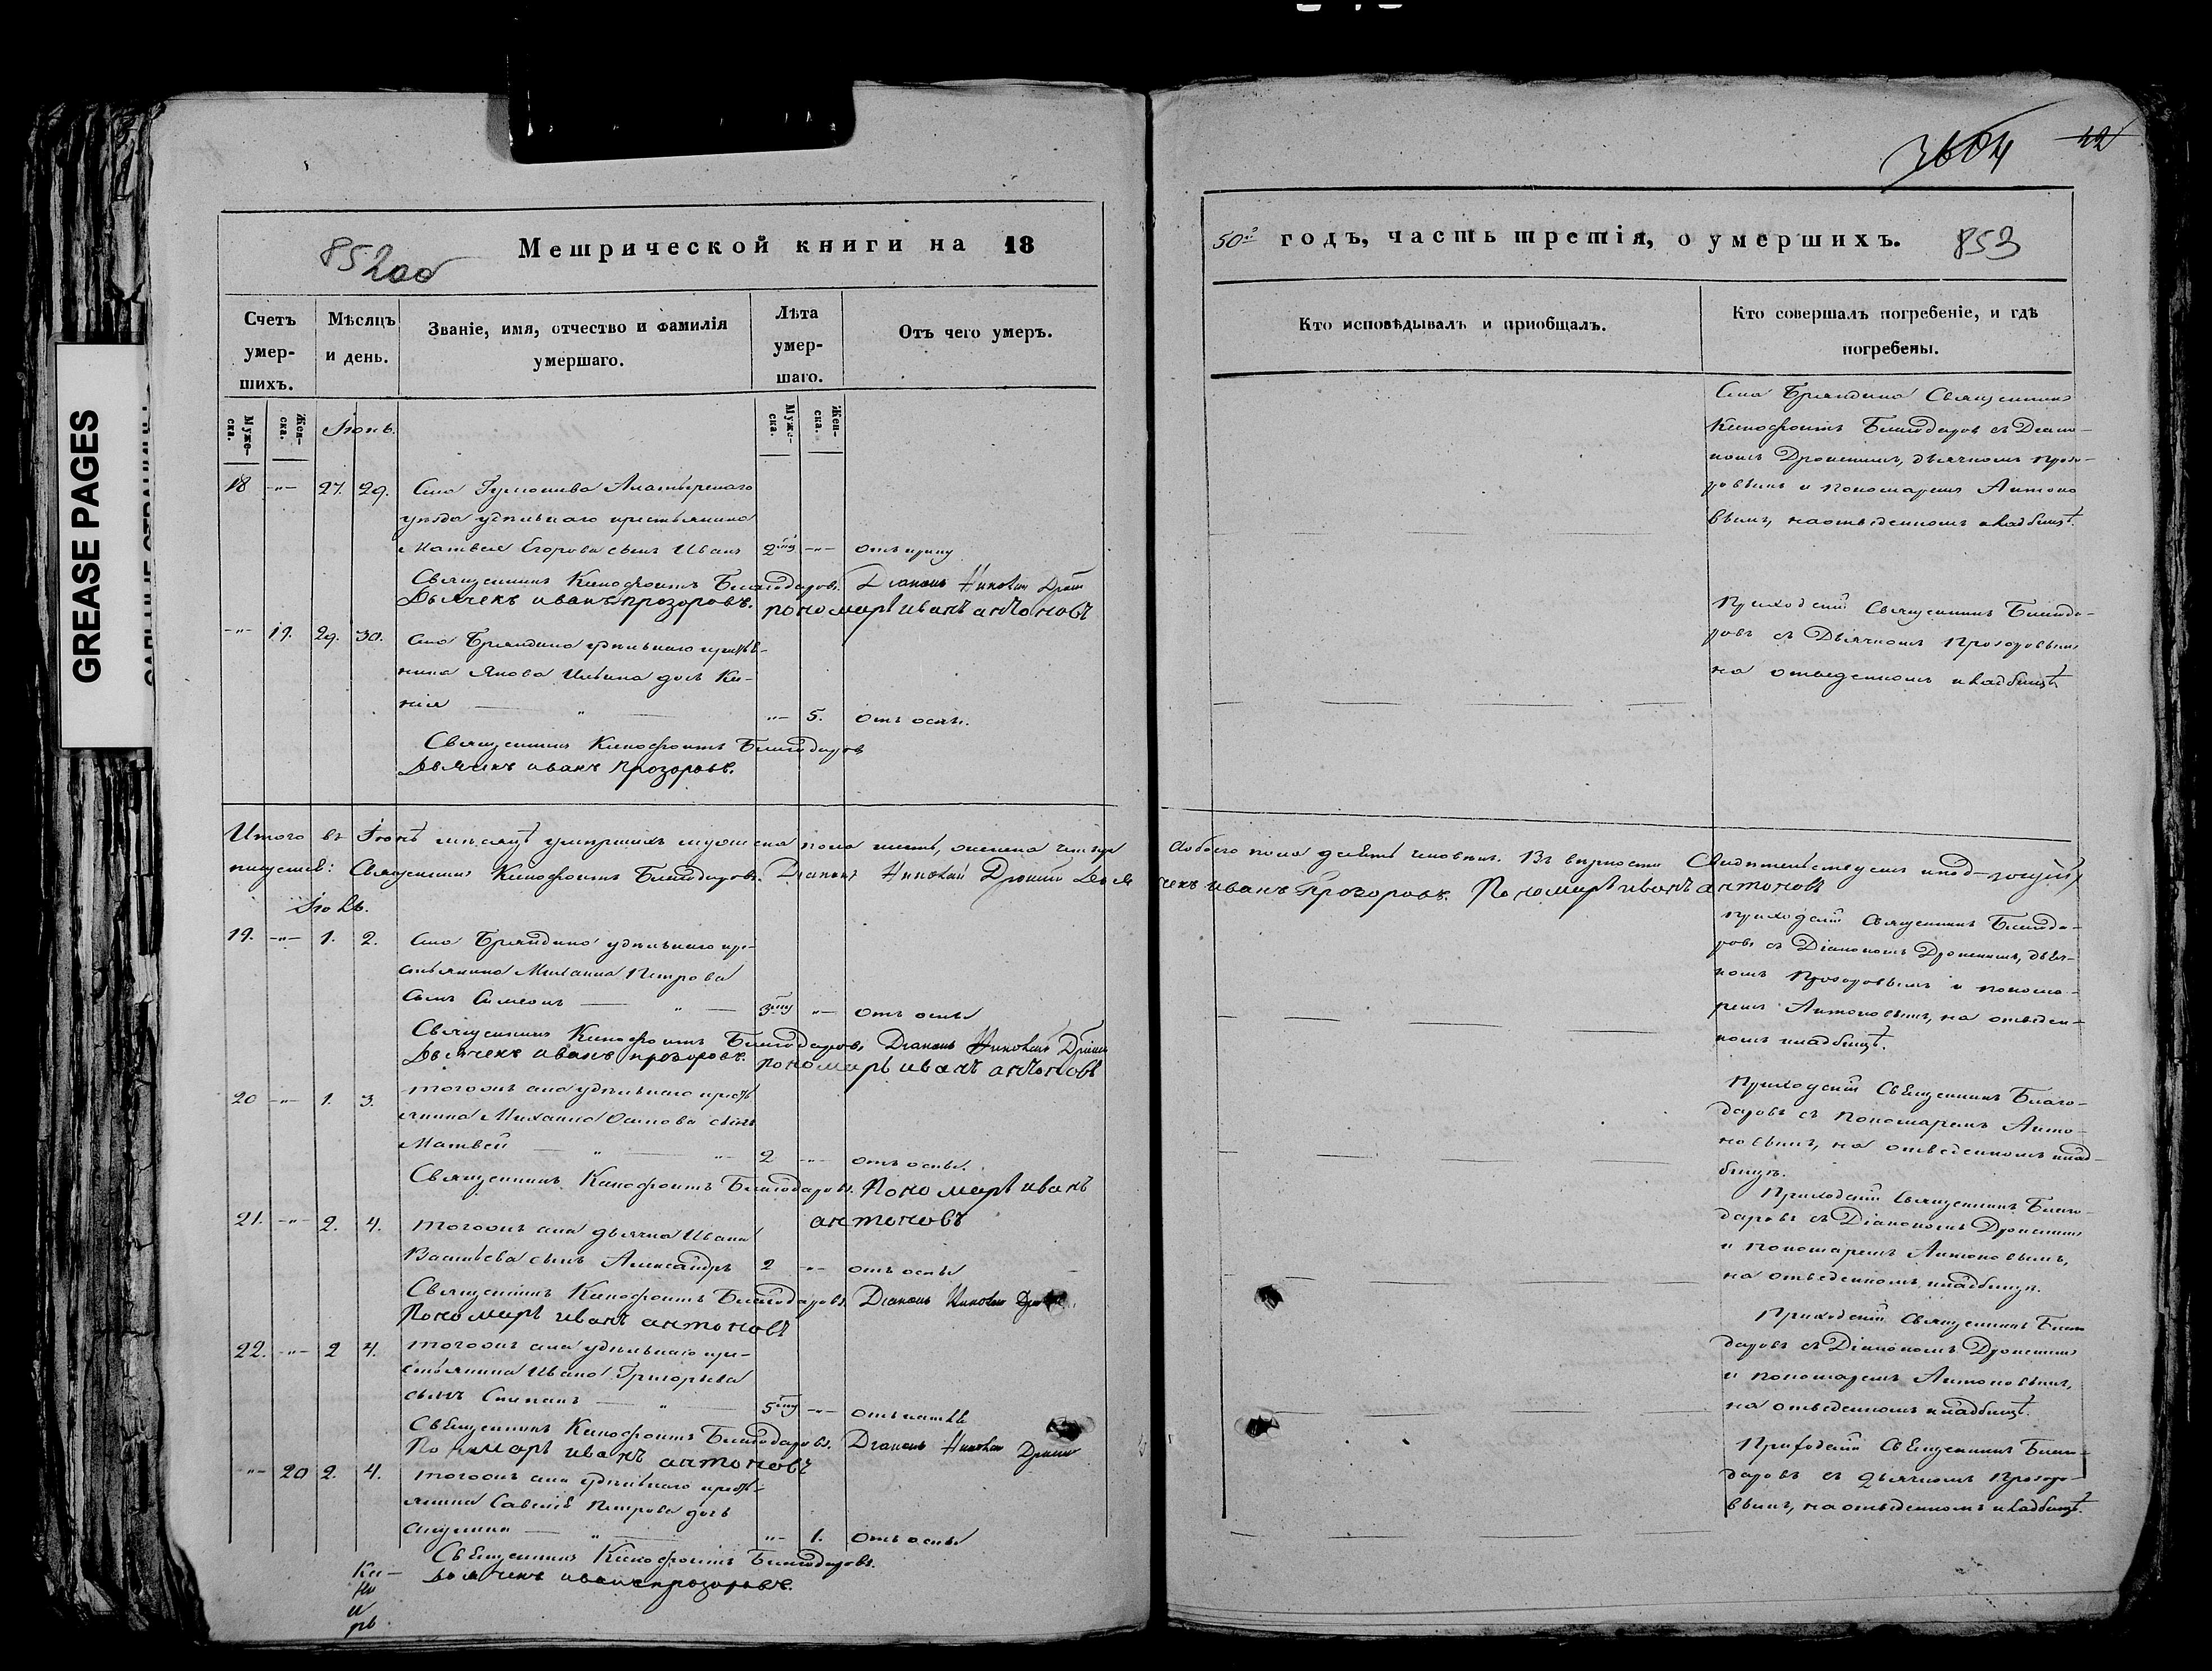 3604 42
852об
Метрической книги на 18
50й годъ, часть третія, о умершихъ. 853
GREASE PAGES
Счетъ умер-шихъ.
Мѣсяцъ и день.
Званіе, имя, отчество и фамилія умершаго.
Лѣта умер-шаго.
Отъ чего умеръ.
Кто исповѣдывалъ и пріобщалъ.
Кто совершалъ погребеніе, и гдѣ погребены.
Муже-ска.
Жен-ска.
Муже-ска.
Жен-ска.
Іюнь.
18 -"- 27. 29. Села
уѣзда удѣльнаго крестьянина
Матвея Егорова сынъ Иванъ 2 -"- отъ
Священникъ Ксенофонтъ Благодаровъ. Діаконъ Николай
Дьячекъ иванъ прозоровъ. пономарь иванъ антоновъ
Священникъ
Ксенофонтъ Благодаровъ съ Діако-
номъ Дрониннымъ, дьячкомъ Прозо-
ровымъ и пономаремъ Антоно
вымъ, на отведенномъ кладбищѣ.
-"- 19. 29. 30. удѣльнаго
нина Якова Ильина дочь Ксе-
нія -"- 5. отъ оспы.
Священникъ Ксенофонтъ Благодаровъ
Дьячекъ иванъ прозоровъ.
Приходскій Священникъ Благода-
ровъ съ Дьячкомъ Прозоровымъ
на отведенномъ кладбищѣ
Итого въ Іюнѣ мѣсяцѣ умершихъ мужеска пола шесть, женска четыре
Священникъ Ксенофонтъ Благодаровъ. Діаконъ Николай Дронинъ Дья
А обоего пола десять человѣкъ. Въ вѣрности
чекъ иванъ Прозоровъ. Пономарь иванъ антоновъ
Іюль.
19. -"- 1. 2. удѣльнаго кре-
стьянина Михаила Петрова
сынъ Симеонъ 3 -"- отъ оспы
Священникъ Ксенофонтъ Благодаровъ, Діаконъ Николай
Дьячекъ иванъ прозоровъ. пономарь иванъ антоновъ
Приходскій Священникъ Благода-
ровъ съ Діакономъ Дронинымъ, дьяч-
комъ Прозоровымъ и понома-
ремъ Антоновымъ, на отведен-
номъ кладбищѣ.
20 -"- 1. 3. тогожъ села удѣльнаго кресть
янина Михаила Осипова сынъ
Матвей 2 -"- отъ оспы.
Священникъ Ксенофонтъ Благодаровъ. Пономарь иванъ
антоновъ
Приходскій Священникъ Благо-
даровъ съ Пономаремъ Анто-
новымъ, на отведенномъ клад-
бищѣ.
21. -"- 2. 4. тогожъ села дьячка Ивана
Васильева сынъ Александръ 2 -"- отъ оспы
Священникъ Ксенофонтъ Благодаровъ. Діаконъ Николай
Пономарь иванъ антоновъ
Приходскій Священникъ Благо-
даровъ съ Діакономъ Дронинымъ
и пономаремъ Антоновымъ,
на отведенномъ кладбищѣ.
22. -"- 2 4. тогожъ села удѣльнаго кре-
стьянина Ивана Григорьева
сынъ Степанъ 5 -"- отъ
Священникъ Ксенофонтъ Благодаровъ. Діаконъ Николай
Пономарь иванъ антоновъ Дронинъ
Приходскій Священникъ Благо
даровъ съ Діакономъ Дронинымъ
и пономаремъ Антоновымъ,
на отведенномъ кладбищѣ.
-"- 20 2. 4. тогожъ села удѣльнаго кресть-
янина Савелія Петрова дочь
-"- 1. отъ оспы
Священникъ Ксенофонтъ Благодаровъ.
Дьячекъ иванъ прозоровъ.
Приходскій Священникъ Благо-
даровъ съ дьячкомъ Прозоро-
вымъ, на отведенномъ кладбищѣ.